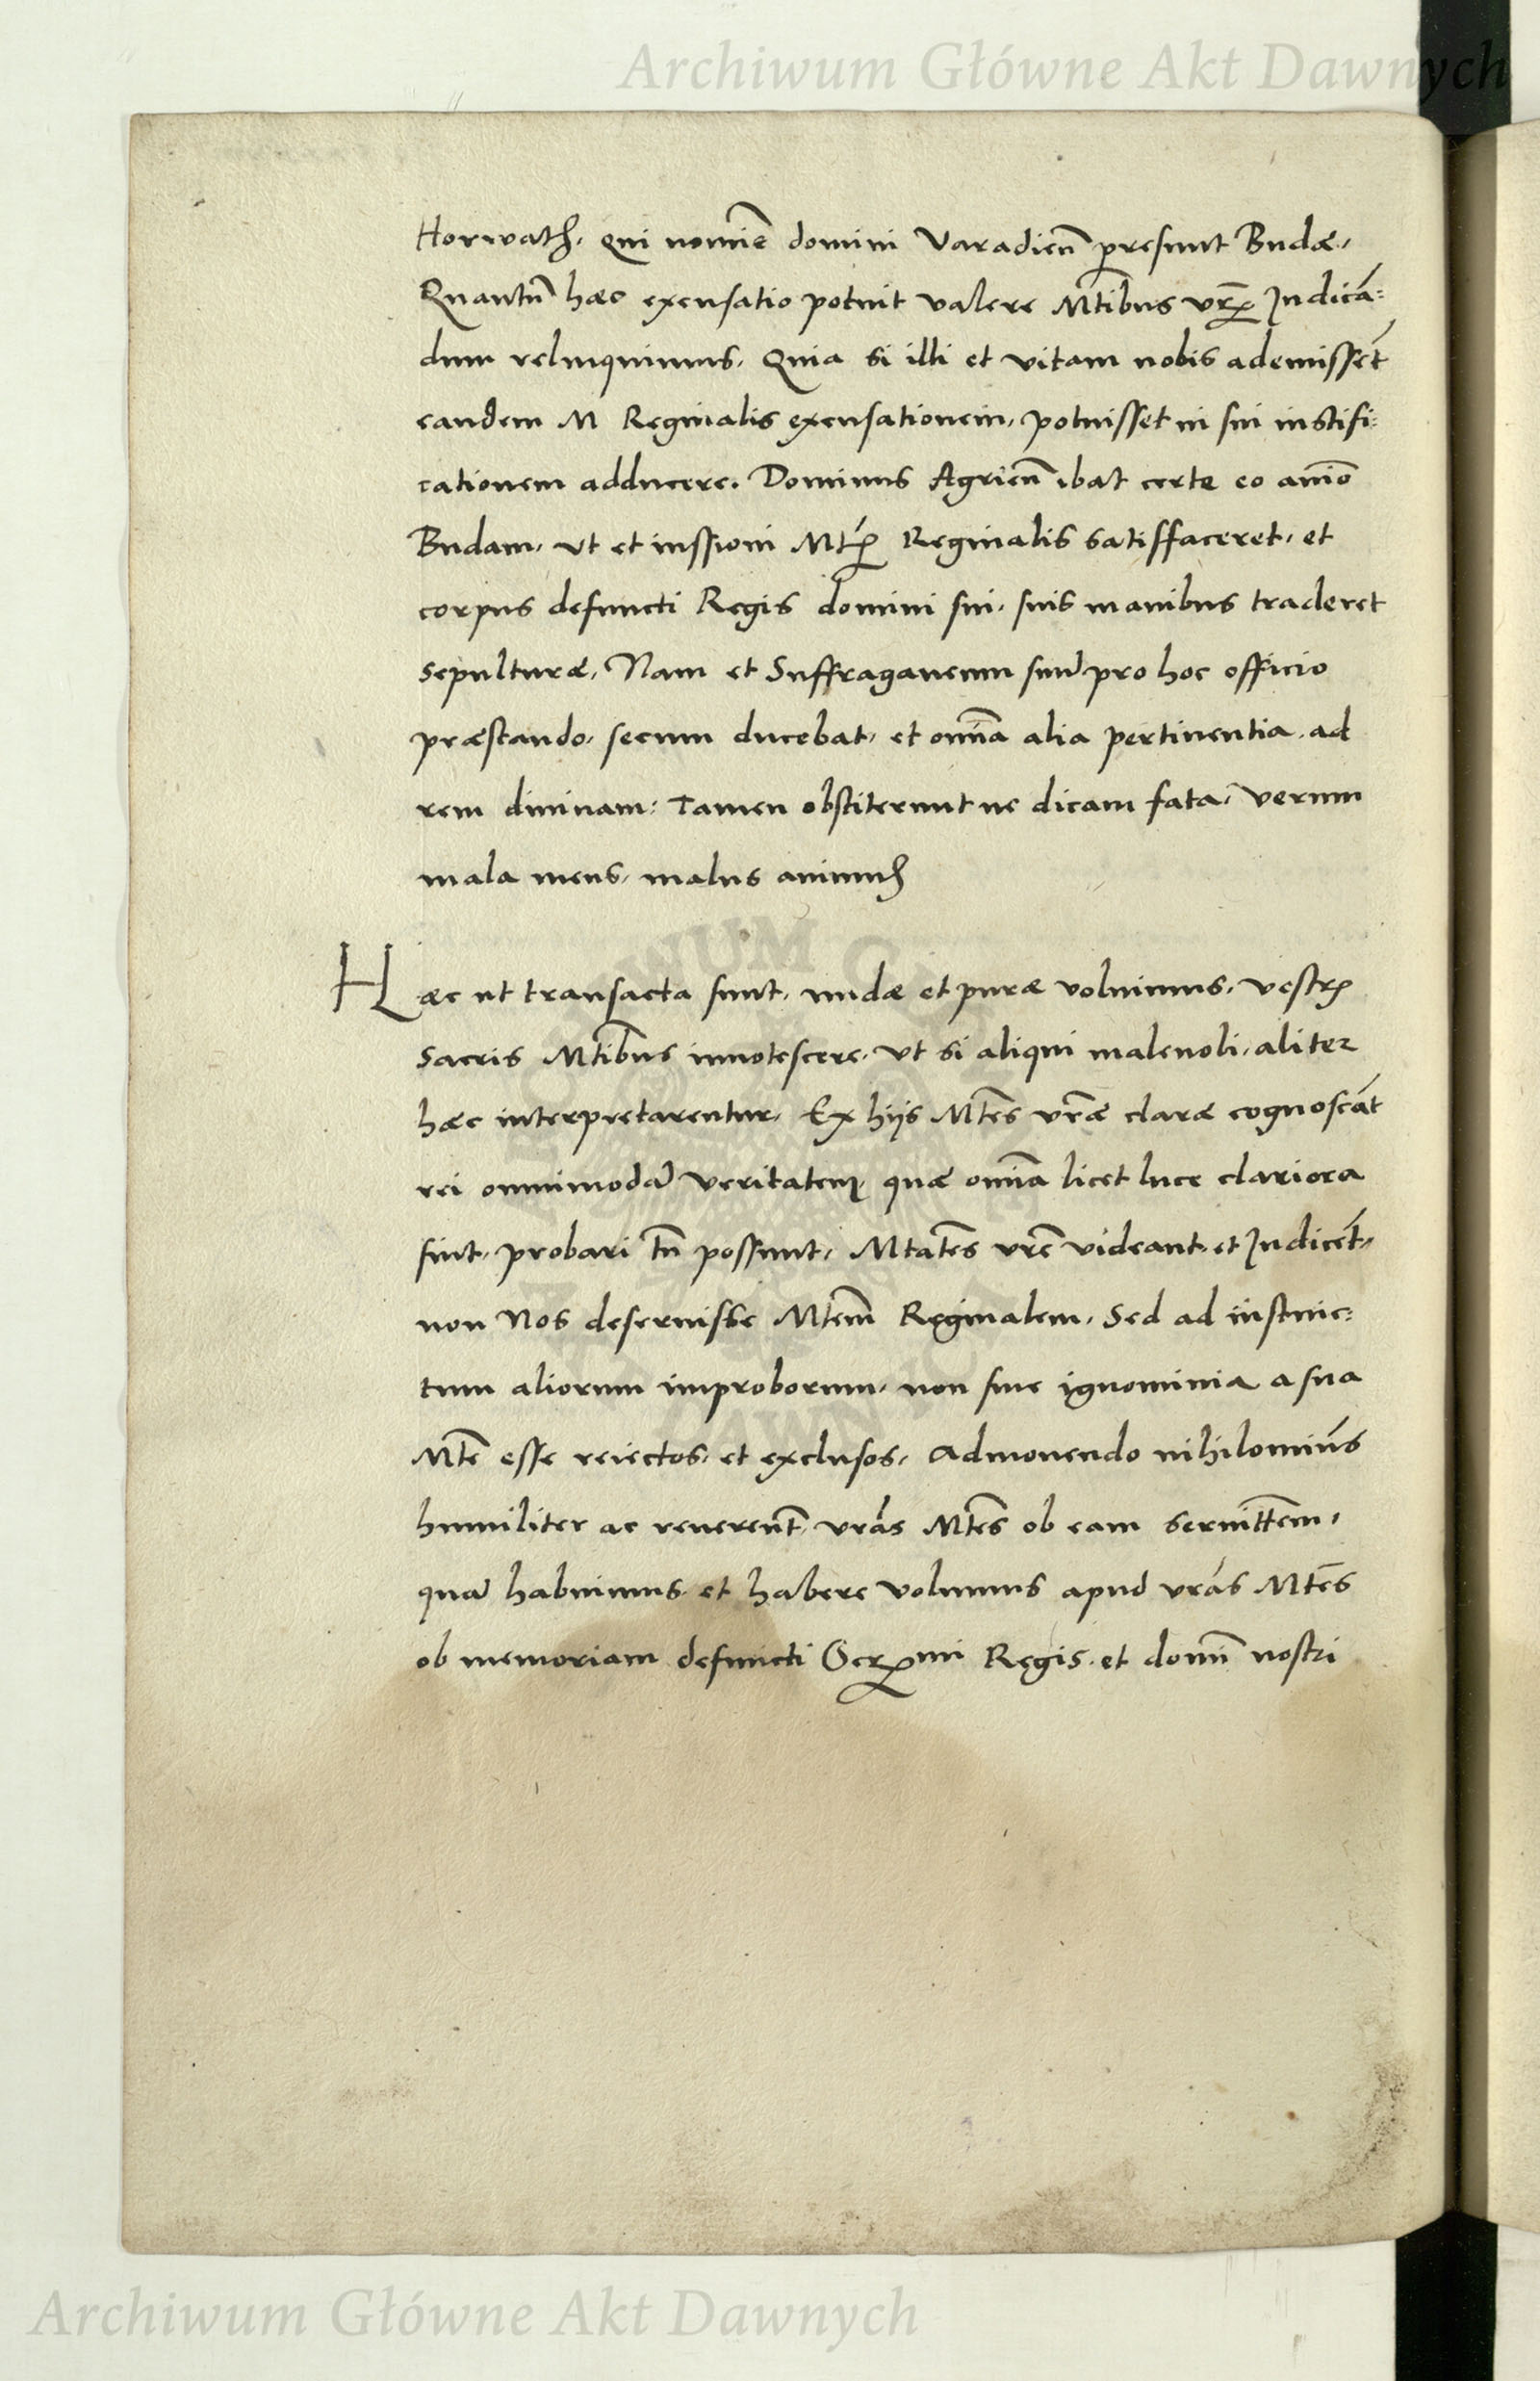 Archiwum Główne Akt Dawnych
Horwath, qui nomīe domini Varadieñ presunt Budæ,
Quantũ hæc excusatio potuit valere Mtībus vrꝝ̃ Judicā=
dum relinquimus. Quia si illi et vitam nobis ademissēt
eandem M Reginalis excusationem, potuisset in sui iustifi=
cationem adducere. Dominus Agrieñ ibat certe eo anīo
Budam, ut et iussioni Mtꝭ Reginalis satisffaceret, et
corpus defuncti Regis domini sui, suis manibus traderet
sepulturæ, Nam et Suffraganeum suū pro hoc officio
præstando, secum ducebat, et omīa alia pertinentia ad
rem diuinam: Tamen obstiterunt ne dicam fata, verum
mala mens, malus animus
Hæc ut transacta sunt, nudæ et puræ voluimus, vestrꝭ
Sacris Mtībus innotescere, Ut si aliqui maleuoli, aliter
hæc interpretarentur, Ex hijs Mtēs vrāe claræ cognoscāt
rei omnimodā veritatem, quæ omīa licet luce clariora
sint, probari tñ possunt, Mtatēs vrē videant et Judicēt,
non Nos deseruisse Mtēm Reginalem, Sed ad instinc=
tum aliorum improborum, non sine ignominia a sua
Mtē esse reiectos, et exclusos, Admonendo nihilomiūs
humiliter ac reuerenīt, vrās Mtēs ob eam seruittēm,
quā habuimus et habere volumus apud vrās Mtēs
ob memoriam defuncti Serᵐⁱ Regis et domīi nostri
Archiwum Główne Akt Dawnych